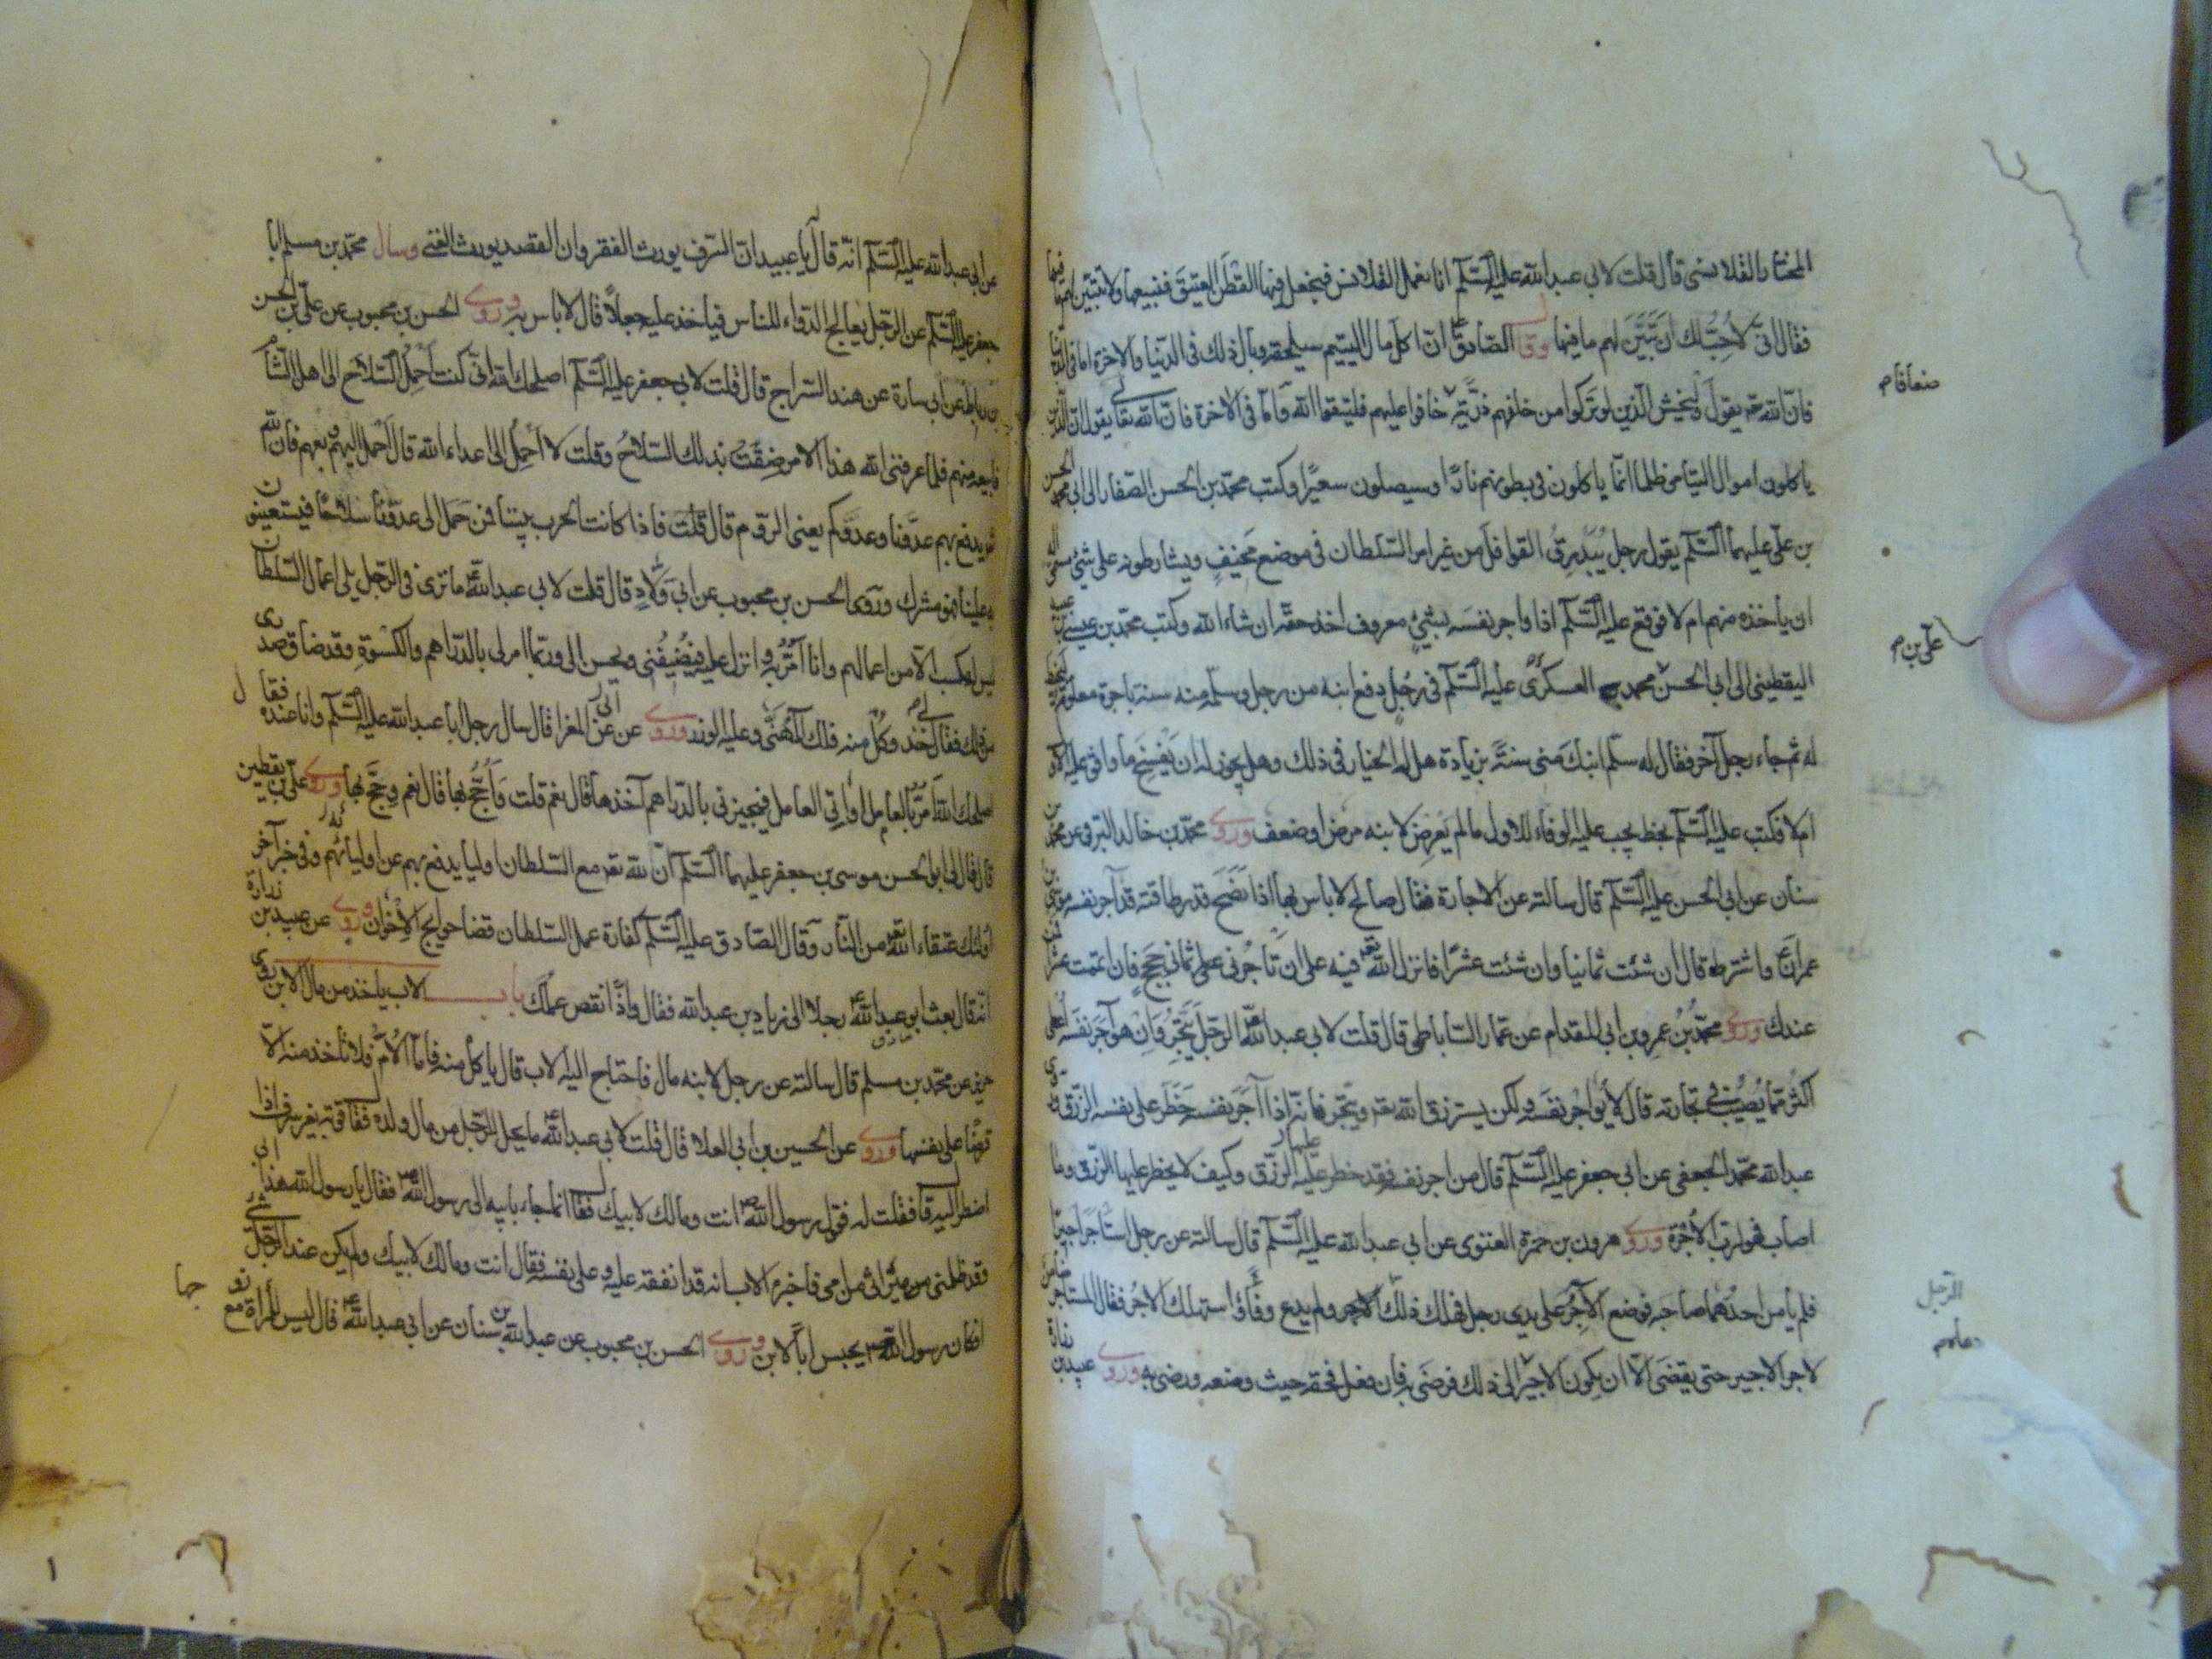 المختار القلانسى قال قلت لابى عبدالله عليه السّلم انا نعمل القلانس فنجعل فيها القطن العتيق فنبيعها ولا نبيّن لهم ما فيها
فقال انّى لاُحِبُّ لك ان تُبَيِّنَ لهم ما فيها وقال الصّادق ع انّ اكل مال اليتيم سيلحقه وبال ذلك فى الدّنيا والاخرة اما فى الدّنيا
فانّ الله تع يقول وليخش الّذين لو تركوا من خلفهم ذريّة ضعافا خافوا عليهم فليتقوا الله وامّا فى الاخرة فانّ الله تعالى يقول انّ الّذين
ياكلون اموال اليتامى ظلما انّما ياكلون فى بطونهم نارًا وسيصلون سعيرًا وكتب محمّد بن الحسن الصّفار الى ابى محمّد الحسن
بن علّى عليهما السّلم يقول رجل يُبَذرِقُ القوافل من غير امر السّلطان فى موضع مُخيفٍ ويشارطونه على شئ مسمّى اله
ان ياخذه منهم ام لا فوقع عليه السّلم اذا واجر نفسَه بشئٍ معروف اخذ حقّه ان شاء الله وكتب محمّد بن عيسى بن عبيد
اليقطينى الى ابى الحسن علّى بن محمد العسكرى عليه السّلم فى رجُلٍ دفع ابنه من رجل وسلّمه منه سنة باجرة معلومة ليخيط
له ثم جاء رجل آخر فقال له سلّم ابنك منى سنةً بزيادة هل له الخيار فى ذلك وهل يجوز له ان يَفسخ ما وافق عليه الاول
ام لا فكتب عليه السّلم بخط يجب عليه الوفاء للاول ما لم يَعرِض لابنه مرض او ضعف وروى محمّد بن خالد البرقى عن محمّد بن
سنان عن ابى الحسن عليه السّلم قال سالته عن الاجارة فقال صالح لاباس بها اذا نَصَحَ قدر طاقته قد آجر نفسه موسى بن
عمران ع واشترطه قال ان شئت ثمانيا وان شئت عشرًا فانزل الله تع فيه على ان تأجُرنى على ثمانى حججٍ فان اتممت عشرًا فمن
عندك وروى محمّد بنُ عمرو بن ابى المقدام عن عمّار السّاباطى قال قلت لابى عبدالله ع الرّجل يَتّجِرُ وَاِن هو آجَرَ نفسَه اُعطى
اكثر ممّا يُصيبُ فى تجارته قال لا يُواجِر نفسَه ولكن يسترزق الله تع ويتّجر فانّه اذا آجَرَ نفسَه حَظَرَ على نفسه الرّزق وروى
عبدالله محمّد الجعفى عن ابى جعفر عليه السّلم قال من اجر نفسه فقد حظر عليها الرّزق وكيف لا يحظر عليها الرّزق وما
اصاب فهو لربّ الاُجرة وروى هرون بن حمزة الغنوى عن ابى عبدالله عليه السّلم قال سالته عن رجل استأجر اجيرًا
فلم يامن احدُهما صاحبه فوضع الآجر على يدى رجل فهلك ذلك الرّجل ولم يدع وفاءً استهلك الاجرُ فقال المستاجر ضامن
لاجر الاجير حتى يقضى الّا ان يكون الاجير دعاه الى ذلك فرضى به فان فعل فحقه حيث وضعه ورضى به وروى عبيد بن زرارة
ضعافا م
علّى بن م
الرّجل
دعاه م
عن ابى عبدالله عليه السّلم انّه قال يا عبيد انّ السّرف يورث الفقر وان القصد يورث الغنى وسال محمّد بن مسلم ابا
جعفر عليه السّلم عن الرّجل يعالج الدّواء للناس فياخذ عليه جعلاً قال لاباس به وروى الحسن بن محبوب عن علّى بن الحسن
بن رباط عن ابى سارة عن هند السّراج قال قلت لابى جعفر عليه السّلم اصلحك الله انّى كنت اَحمِلُ السّلاح الى اهل الشّام
فابيعه منهم فلما عرفنى الله هذا الامر ضِقتُ بذلك السّلاح وقلت لا اَحمِلُ الى اعداء الله قال اَحمل اليهم وبعهم فان الله
تع يدفع بهم عدّونا وعدوّكم يعنى الرّوم قال قلت فاذا كانت الحرب بيننا فمن حَمَل الى عدّونا سلاحًا فيستعينون
به علينا فهو مشرك وروى الحسن بن محبوب عن ابى وَلّادٍ قال قلت لابى عبدالله ع ما ترى فى الرّجل يلى اعمال السّلطان
ليس له مكسب الّا من اعمالهم وانا اَمُرُّ به وانزل عليه فيُضيفُنى ويحسن الى وربّما امر لى بالدّراهم والكسوة وقد ضاق صدرى
من ذلك فقال لى خذ وكُل منه فلك المُهَنّى وعليه الوزر وروى عن ابى المغرا قال سال رجل ابا عبدالله عليه السّلم وانا عنده فقال
اصلحك الله اَمُرّ بالعامل او اٰتى العامل فيجيزنى بالدّراهم آخذها قال نعم قلت وَاَحُجُّ بها قال نعم وحُجَّ بها وروى علّى بن يقطين
قال قال لى ابو الحسن موسى بن جعفر عليهما السّلم انّ لله تع مع السّلطان اوليا يدفع بهم عن اوليائهم وفى خبر آخر
اولئك عتقاء الله من النّار وقال الصّادق عليه السّلم كفارة عمل السّلطان قضا حوايج الاخوان وروى عن عبيد بن زرارة
انّه قال بعث ابو عبدالله ع رجلا الى زياد بن عبدالله فقال واذًا نقص عملك باب الاب ياخذ من مال الابن روى
حريز عن محمّد بن مسلم قال سالته عن رجل لابنه مال فاحتاج اليه الاب قال ياكل منه فامّا الاُمّ فلا تاخذ منه الّا
قرضًا على نفسها وروى عن الحسين بن ابى العلا قال قلت لابى عبدالله ع ما يحل للرّجل من مال ولده فقال قوته بغير سرف اذا
اضطر اليه قال فقلت له فقول رسول الله ص انت ومالك لابيك فقال انما جاء بابيه الى رسول الله ص فقال يا رسول الله هذا ابى
وقد ظلمنى ميراثى من امى فاخبره الاب انه قد انفقه عليه وعلى نفسه فقال انت ومالك لابيك ولم يكن عند الرّجل شئ
افكان رسول الله ص يحبس اباً لابن وروى الحسن بن محبوب عن عبدالله بن سنان عن ابى عبدالله ع قال ليس للمراة مع زو
جها